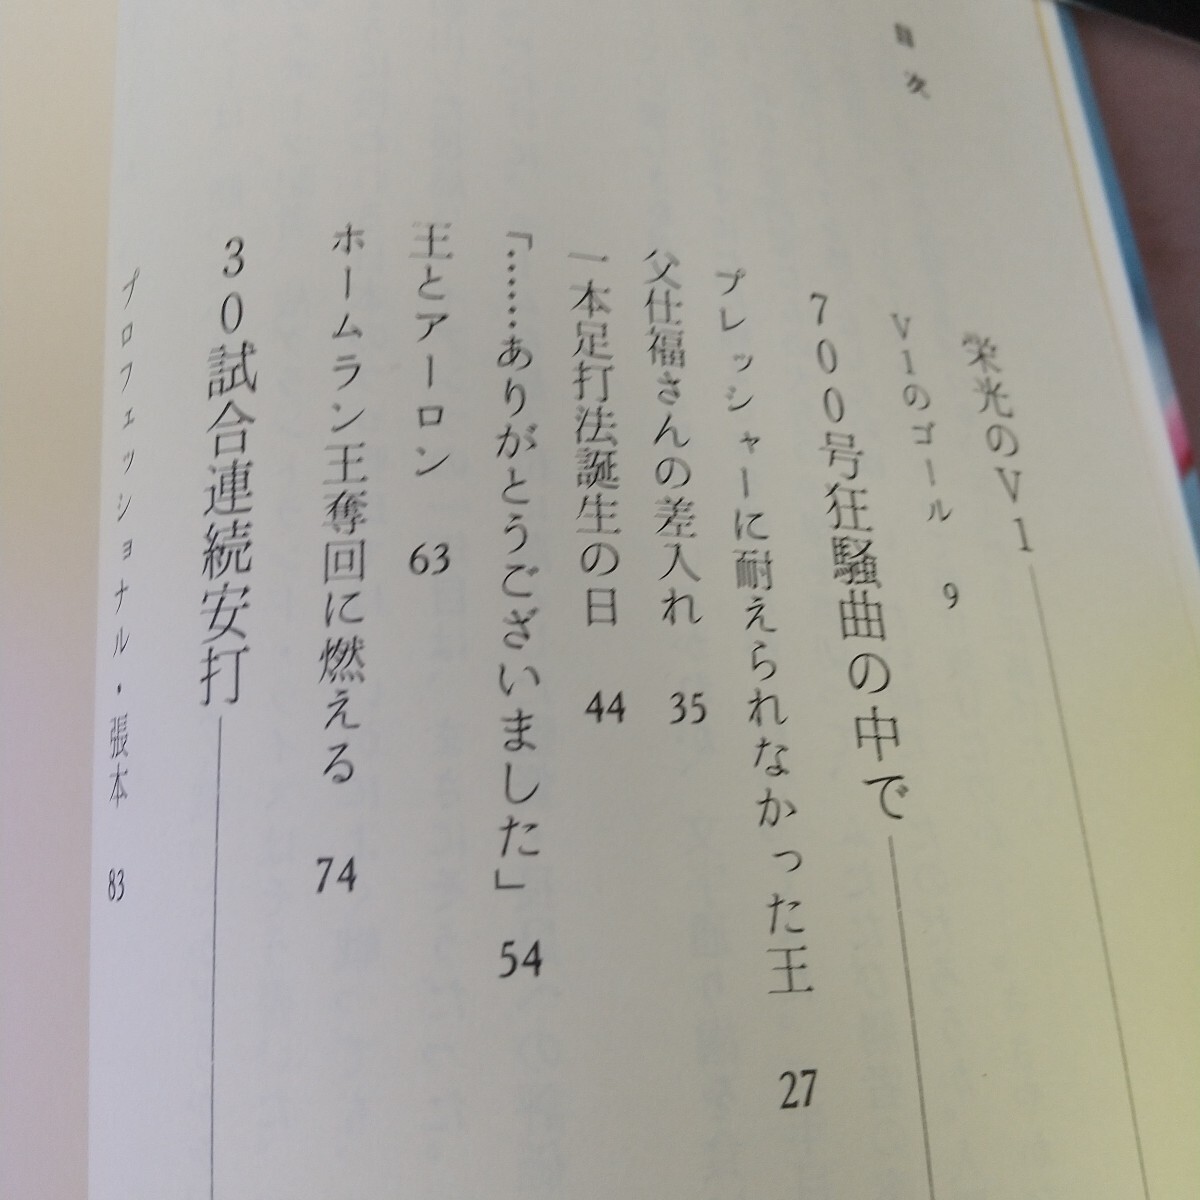 目次
栄光のV1
V1のゴール 9
700号狂騒曲の中で
プレッシャーに耐えられなかった王 27
父仕福さんの差入れ 35
一本足打法誕生の日 44
「……ありがとうございました」 54
王とアーロン 63
ホームラン王奪回に燃える 74
30試合連続安打
プロフェッショナル・張本 83